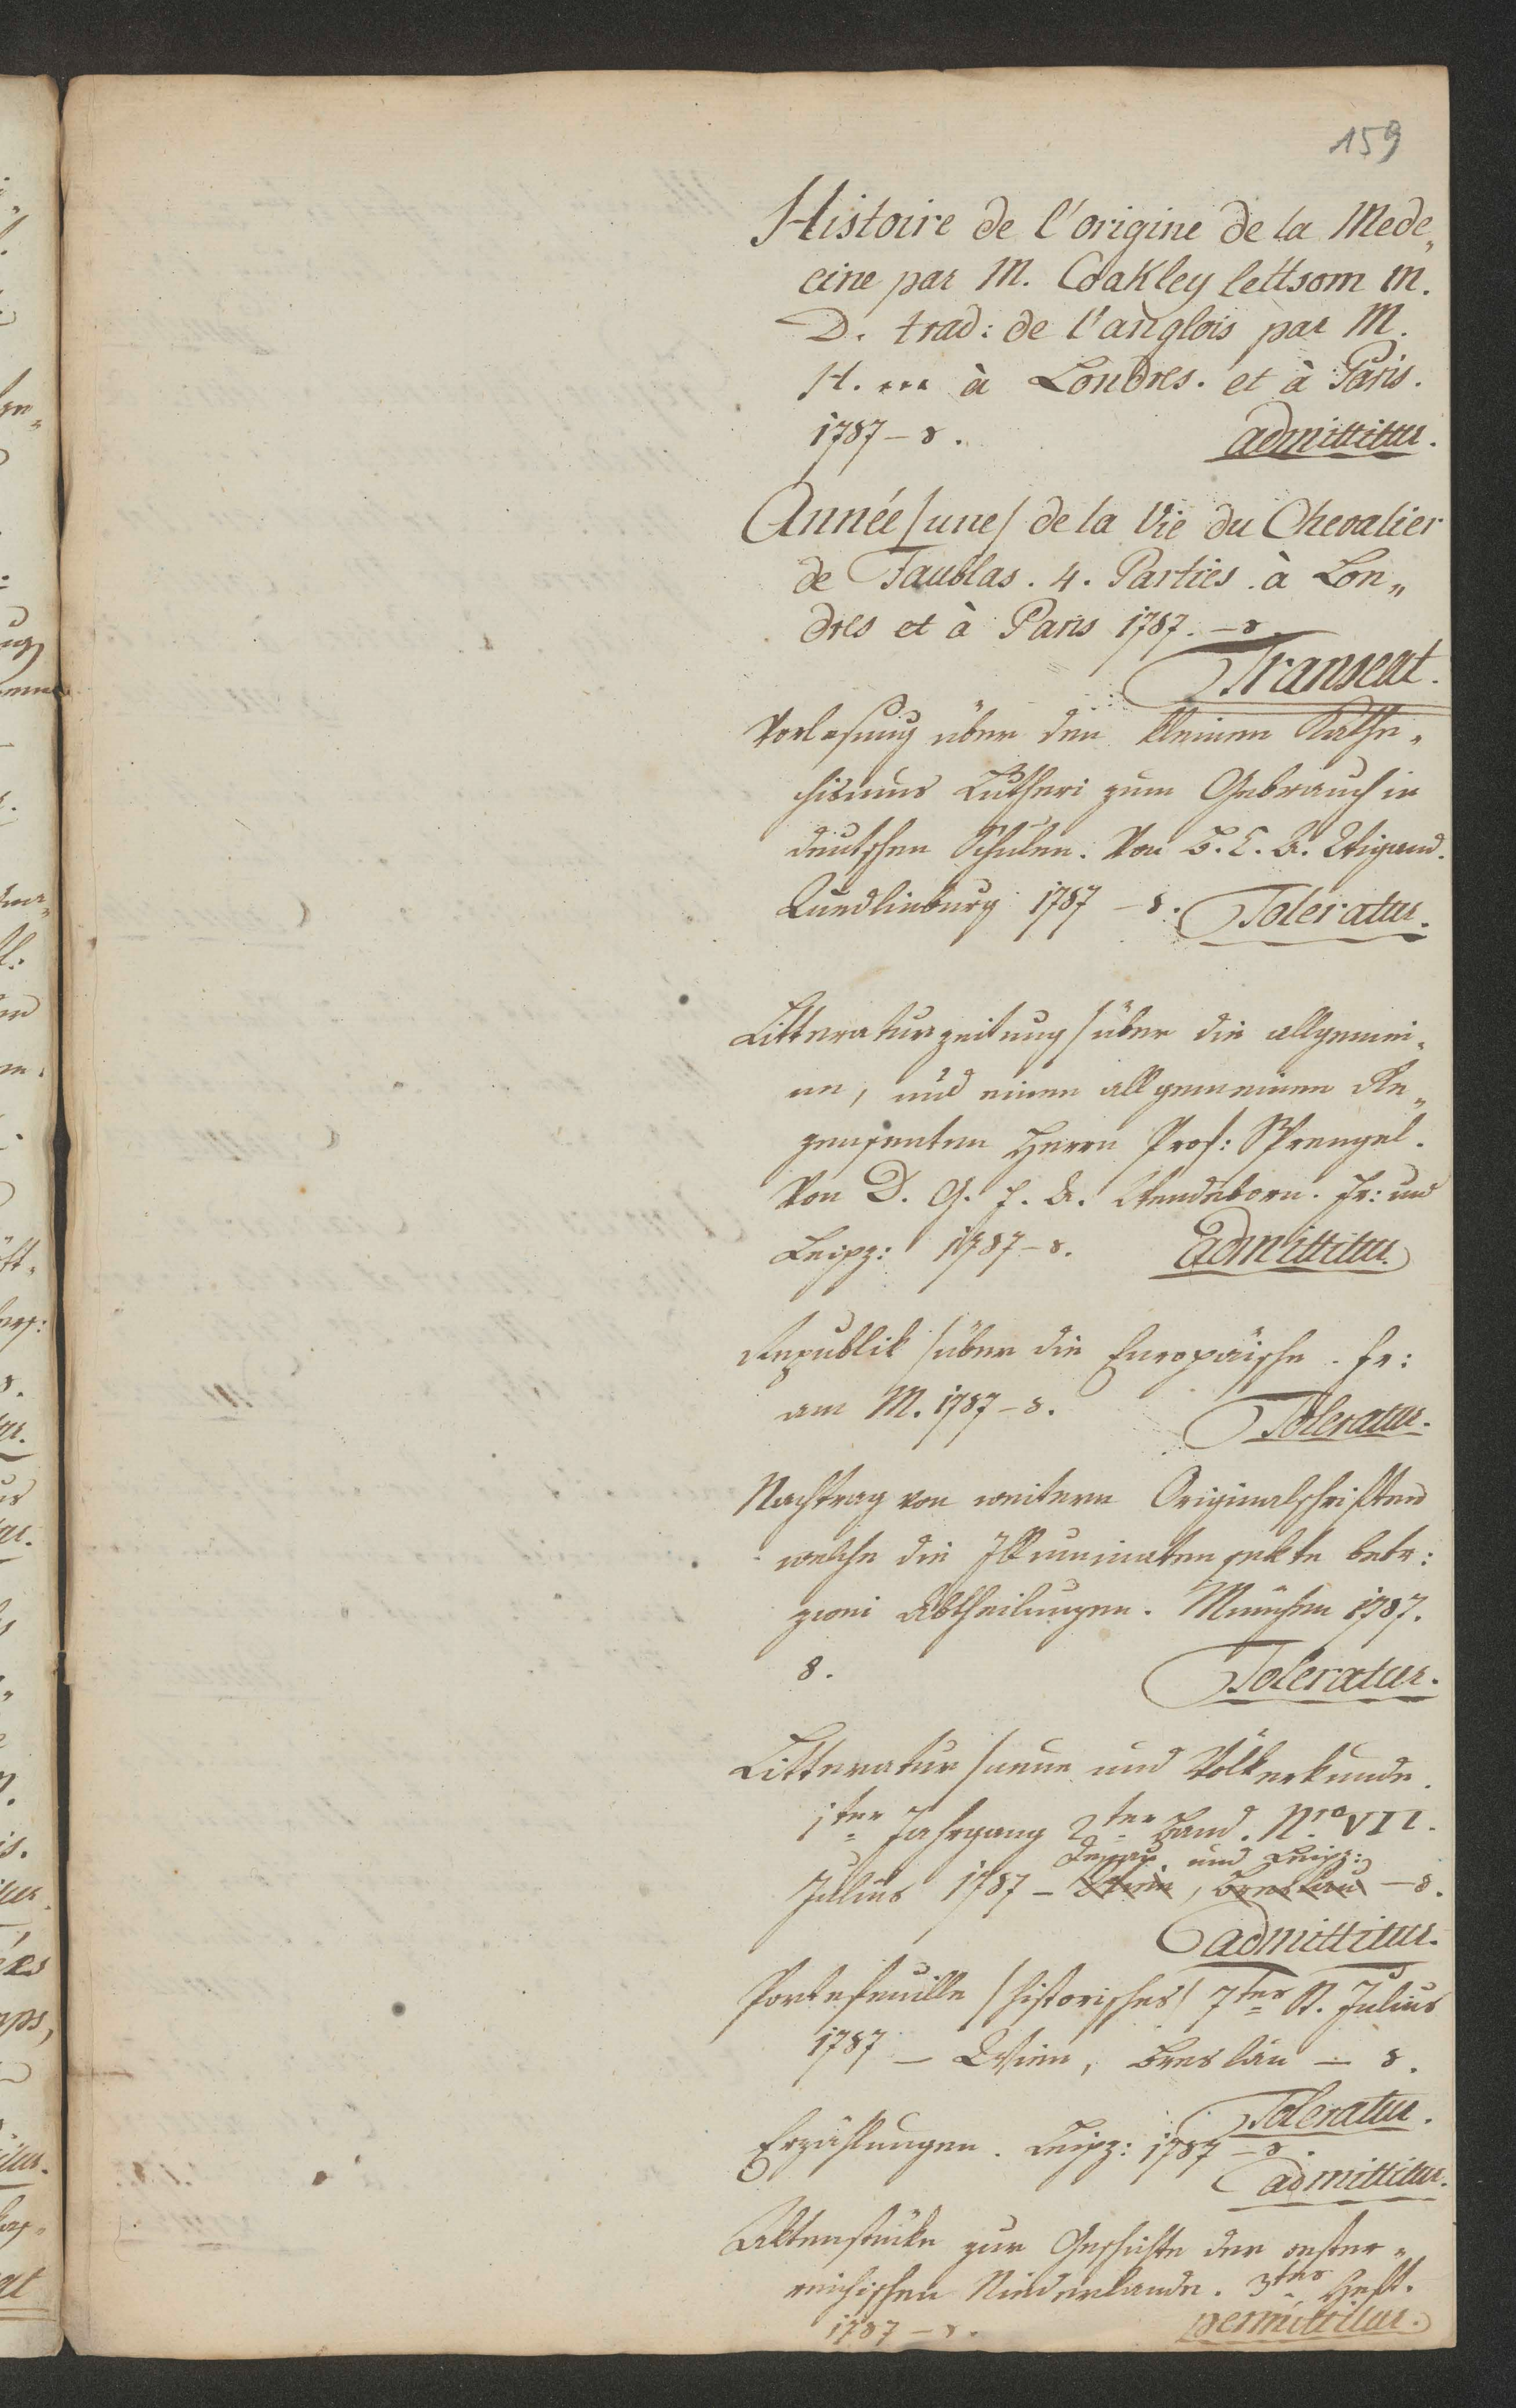 159
Histoire de l'origine de la Mede„
cine par M. Coakley lettsom M.
D. trad: de l'anglois par M.
H. *** à Londres. et à Paris.
1787 – 8. admittitur.
Année /une/ de la Vie du Chevalier
de Faublas. 4. Parties à Lon„
dres et à Paris 1787. – 8.
Transeat.
Vorlesung über den kleinen Kathe„
chismus Lutheri zum Gebrauch in
deutschen Schulen. Von B. C. A. Wigand.
Quedlinburg 1787 – 8. Toleratur.
Litteraturzeitung /über die allgemei„
ne, und einen allgemeinen Re„
zensenten Herrn Prof: Sprengel.
Von D. G. F. A. Wendeborn. Fr: und
Leipz: 1787 – 8. Admittitur.
Republik /über die Europäische. Fr:
am M. 1787 – 8. Toleratur.
Nachtrag von weitern Originalschriften
welche die Illuminatensekte betr:
zwei Abtheilungen. München 1787.
8. Toleratur.
Litteratur /neue und Völkerkunde.
1ter Jahrgang 2ter Band. Nro VII.
Dessau und Leipz:
Julius 1787 – Wien, Breslau – 8.
admittitur.
Portefeuille /historisches/ 7tes St. Julius
1787 – Wien, Breslau – 8.
Toleratur.
Erzählungen. Leipz: 1787 – 8.
admittitur.
Aktenstücke zur Geschichte der oester„
reichischen Niederlande. 3tes Heft.
1787 – 8. permittitur.